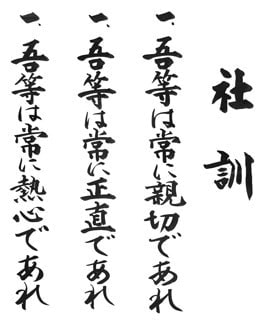 社訓
一、吾等は常に親切であれ
一、吾等は常に正直であれ
一、吾等は常に熱心であれ